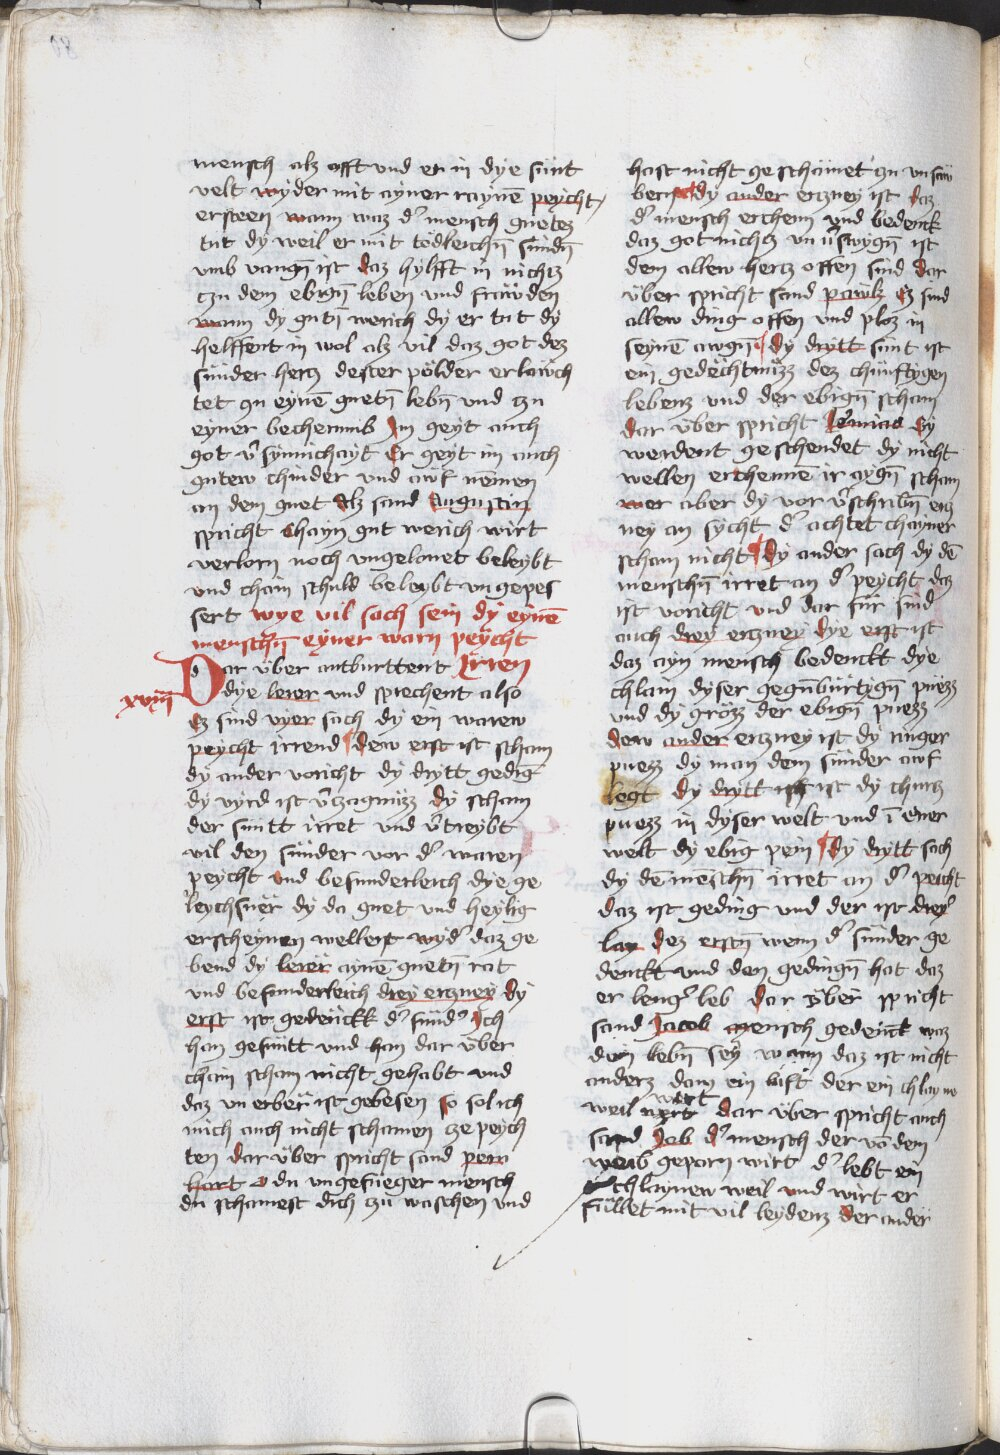 mensch alz offt vnd er in dye sünt
velt wyder mit ayner raynē peycht
ersteen wann waz d' mensch guetez
tut dy weil er mit tödleichn̄ sündn̄
vmb vangn̄ ist daz hylfft in nichtz
czu dem ebign̄ leben vnd fräwden
wann dy gutn̄ werich dy er tut dy
helffent in wol alz vil daz got dez
sünder hercz dester pölder erlawch
tet zu eynē guetn̄ lebn̄ vnd czu
eyner becherumb Im geyt auch
got v'synnichayt Er geyt im auch
gutew chinder vnd awf nemen
an dem guet Alz sand Augustin
spricht Chayn gut werich wirt
verlorn noch vngelonet beleybt
vnd chain schuld beleybt vn gepes
sert wye vil sach sein dy eynē
menschn̄ eyner warn peycht
Dar über antburttent Irren
xviii dye lerer vnd sprechent also
Ez sind vyer sach dy ein warew
peycht irrend dew erst ist scham
dy ander voricht dy drytt geding
dy vyrd ist v'czagnüzz dy scham
der sünt irret vnd v'treybt
vil den sünder vor d' waren
peycht vnd besunderleich dye ge
leychsner dy da guet vnd heylig
erscheynen wellent wyd' daz ge
bend dy lerer aynē guetn̄ rat
vnd besunderleich drey erczney dy
erst ist gedenckk d' sünd' Ich
han gesüntt vnd han dar über
chain scham nicht gehabt vnd
daz vn erber ist gebesen so sol ich
mich auch nicht schamen cze peych
ten dar über spricht sand pern
hart o du vngefüeger mensch
du schamest dich czu waschen vnd
hast nicht geschämet zu vn saw
bern dy ander erczney ist daz
d' mensch erchenn vnd bedenck
daz got nichtz vn v'swygn̄ ist
dem allew hercz offen sind dar
über spricht sand pawlz Ez sind
allew ding offen vnd ploz in
seynē awgn̄ dy drytt sünt ist
ein gedächtnüzz dez chünftygen
lebenz vnd der ebign̄ scham
dar über spricht Jeremias Sy
werdent geschendet dy nicht
wellen erchennē ir aygn̄ scham
wer aber dy vor v'schribn̄ ercz
ney an sycht d' achtet chayner
scham nicht dy ander sach dy dē
menschn̄ irret an d' peycht daz
ist voricht vnd dar für sind
auch drey erczney dye erst ist
daz ayn mensch bedenckt dye
chlain dyser gegn̄bürtygn̄ puezz
vnd dy grözz der ebign̄ puezz
dew ander erczney ist dy ringer
puezz dy man dem sünder awf
legt dy drytt ist dy churcz
puezz in dyser welt vnd ī ener
welt dy ebig pein dy drytt sach
dy dē menschn̄ irret an d' peicht
daz ist geding vnd der ist drey
lay dez erstn̄ wenn d' sünder ge
denckt vnd den gedingn̄ hat daz
er leng' leb dar über spricht
sand Jacob mensch gedenck waz
dein lebn̄ sey wann daz ist nicht
anderz dann ein luft der ein chlayne
weil wert dar über spricht auch
sand Job d' mensch der vō dem
weib geporn wirt d' lebt ein
chlaynew weil vnd wirt er
füllet mit vil leydenz der ander